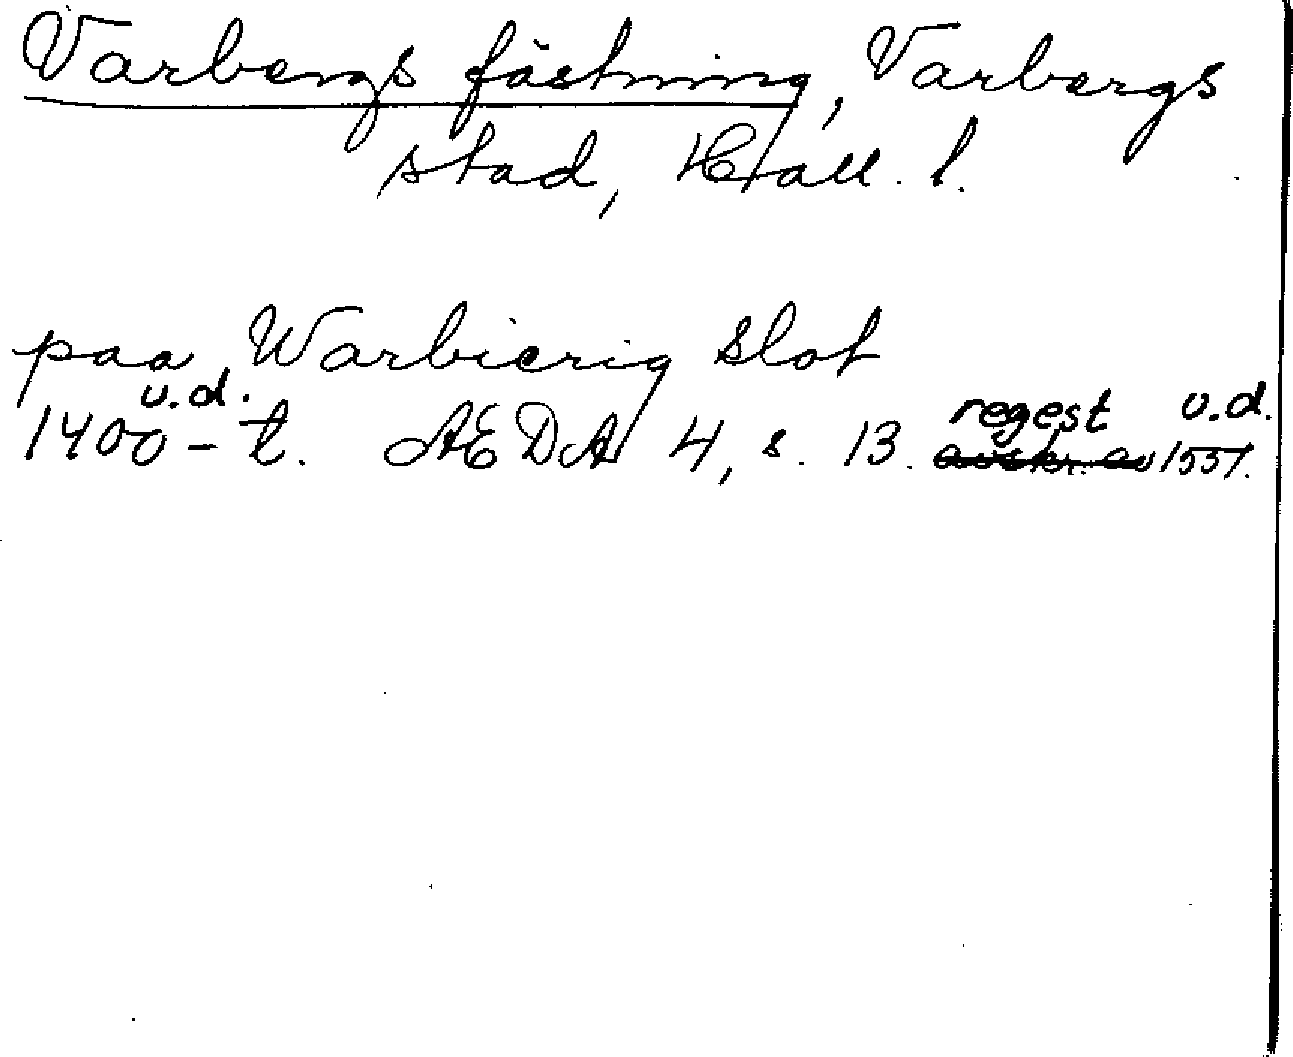 Varbergs fästning, Varbergs
stad, Hall. l.
paa Warbierig Slot
u.d. regest u.d.
1400-t. AEDA 4, s. 13. avskr. av 1551.